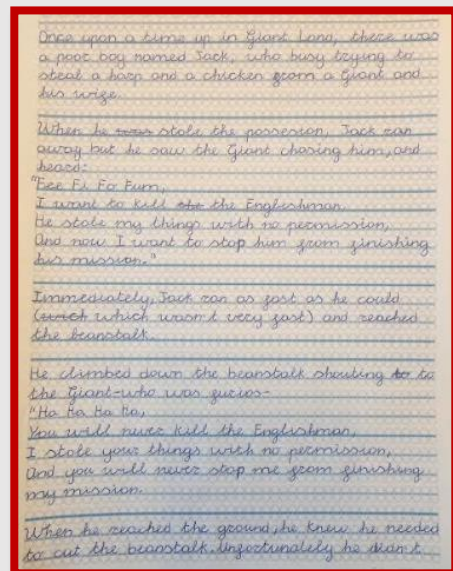 Once upon a time up in Giant Land, there was
a poor boy named Jack, who busy trying to
steal a harp and a chicken from a Giant and
his wife.
When he stole the possesion, Jack ran
away but he saw the Giant chasing him, and
heard:
"Fee Fi Fo Fum,
I want to kill the Englishman.
He stole my things with no permission,
And now I want to stop him from finishing
his mission."
Immediately, Jack ran as fast as he could
(which wasn't very fast) and reached
the beanstalk.
He climbed down the beanstalk shouting to
the Giant-who was furios-
"Ha Ha Ha Ha,
You will never kill the Englishman,
I stole your things with no permission,
And you will never stop me from finishing
my mission.
When he reached the ground, he knew he needed
to cut the beanstalk. Unfortunately he didn't